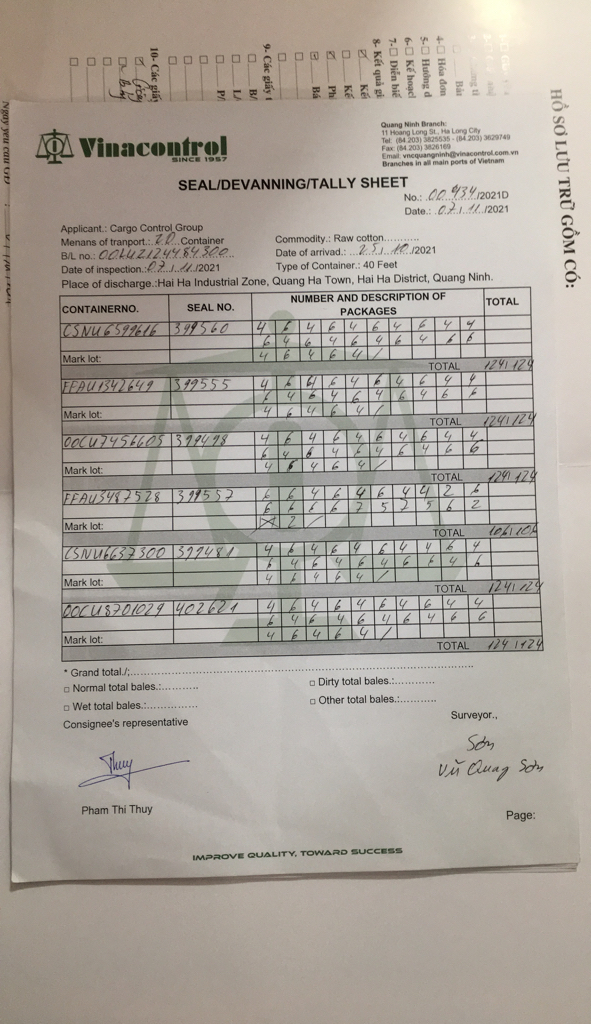 10- Các giấy
9- Các giấy t
8- Kết quả gi
7- Diễn biế
6- Kế hoạcl
5- Hướng d
4- Hóa đơn
HỒ SƠ LƯU TRỮ GỒM CÓ:
Vinacontrol
SINCE 1957
Quang Ninh Branch:
11 Hoang Long St., Ha Long City
Tel: (84.203) 3825535 - (84.203) 3629749
Fax: (84.203) 3826169
Email: vncquangninh@vinacontrol.com.vn
Branches in all main ports of Vietnam
SEAL/DEVANNING/TALLY SHEET
No.: 00934/2021D
Date.: 07/11/2021
Applicant.: Cargo Control Group
Menans of tranport.: 20 Container
Commodity.: Raw cotton
B/L no.: OOLU2124484300
Date of arrivad.: 25/10/2021
Date of inspection.: 07/11/2021
Type of Container.: 40 Feet
Place of discharge.:Hai Ha Industrial Zone, Quang Ha Town, Hai Ha District, Quang Ninh.
CONTAINERNO. SEAL NO. NUMBER AND DESCRIPTION OF PACKAGES TOTAL
CSNU6599616 399560 4 6 4 6 4 6 4 6 4 4
6 4 6 4 6 4 6 4 6 6
Mark lot: 4 6 4 6 4 /
TOTAL 124/124
399555 4 6 6 4 6 4 6 4 4
6 4 6 4 6 4 6 4 6 6
Mark lot: 4 6 4 6 4 /
TOTAL 124/124
OOCU7456605 399498 4 6 4 6 4 6 4 6 4 4
6 4 6 4 6 4 6 4 6 6
Mark lot: 4 6 4 6 4 /
TOTAL 124/124
399557 6 6 4 6 4 6 4 4 2 6
6 6 6 6 7 5 7 5 6 2
Mark lot: 2 /
TOTAL 106/106
CSNU6637300 399481 4 6 4 6 4 6 4 4 6 4
6 4 6 4 6 4 6 4 6
Mark lot: 4 6 4 6 4 /
TOTAL 124/124
OOCU8701029 402621 4 6 4 6 4 6 4 6 4 4
6 4 6 4 6 4 6 4 6 6
Mark lot: 4 6 4 6 4 /
TOTAL 124/124
* Grand total./:
□ Normal total bales.:
□ Dirty total bales.:
□ Wet total bales.:
□ Other total bales.:
Consignee's representative
Surveyor.,
Thuy
Sơn
Vũ Quang Sơn
Pham Thi Thuy
Page:
IMPROVE QUALITY, TOWARD SUCCESS